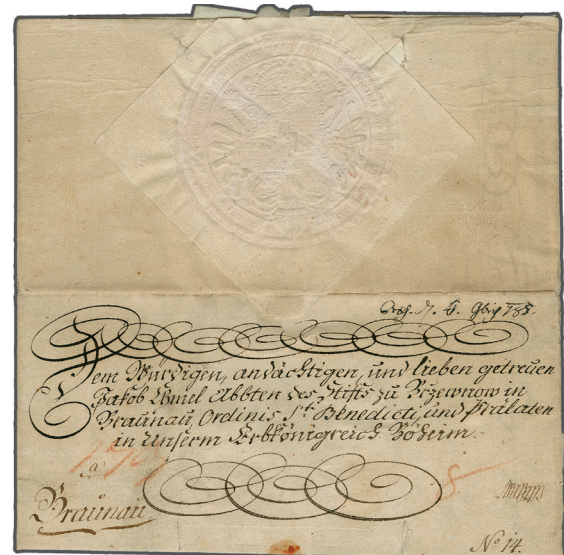 Dem Würdigen, andächtigen, und lieben getreuen
Jakob Chmel Abbten des Stifts zu Brzewnow in
Braunau, Ordinis St. Benedicti, und Prälaten
in Unserm Erbkönigreich Böheim.
a
Braunau
8
No 14.